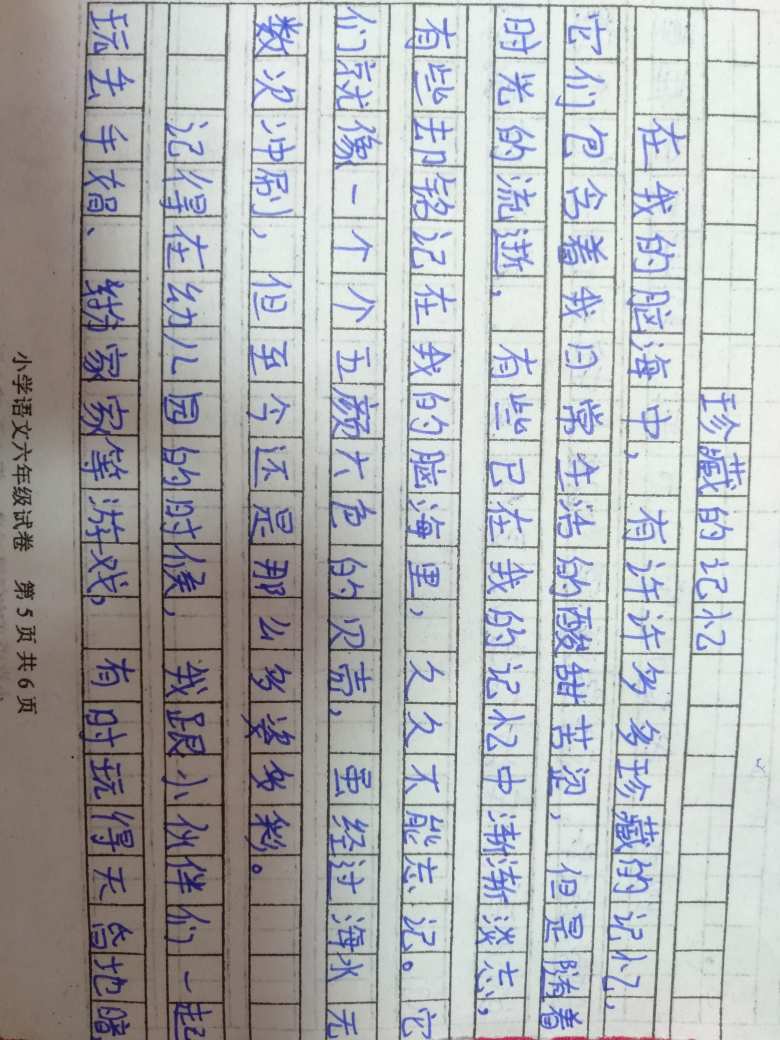 珍藏的记忆
在我的脑海中，有许许多多珍藏的记忆，
它们包含着我日常生活的酸甜苦涩，但是随着
时光的流逝，有些已在我的记忆中渐渐淡忘，
有些却铭记在我的脑海里，久久不能忘记。它
们就像一个个五颜六色的贝壳，虽经过海水无
数次冲刷，但至今还是那么多姿多彩。
记得在幼儿园的时候，我跟小伙伴们一起
玩丢手娟、扮家家等游戏，有时玩得天昏地暗
小学语文六年级试卷 第5页共6页